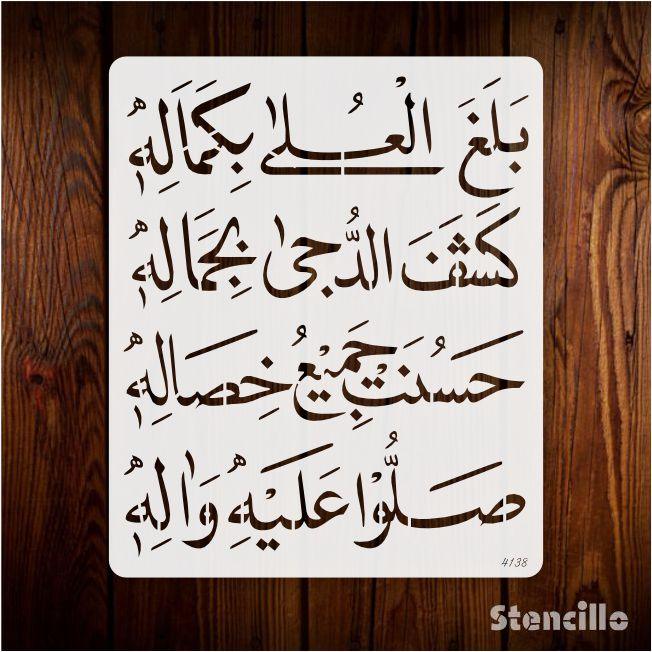 بَلَغَ الْعُلىٰ بِكَمَالِهٖ
كَشَفَ الدُّجىٰ بِجَمَالِهٖ
حَسُنَتْ جَمِيْعُ خِصَالِهٖ
صَلُّوْا عَلَيْهِ وَاٰلِهٖ
4138
Stencillo